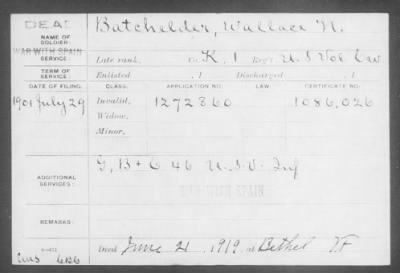 DEAD
NAME OF SOLDIER: Batchelder, Wallace N.
WAR WITH SPAIN
SERVICE: Late rank, Co. K, 1 Reg't U.S. Vol Cav
TERM OF SERVICE: Enlisted , 1 Discharged , 1
DATE OF FILING. CLASS. APPLICATION NO. LAW. CERTIFICATE NO.
1901 July 29 Invalid, 1272860 1086,026
Widow,
Minor,
ADDITIONAL SERVICES: G, B + C 46 U.S.V. Inf
WAR WITH SPAIN
REMARKS:
Died June 21, 1919, at Bethel Vt